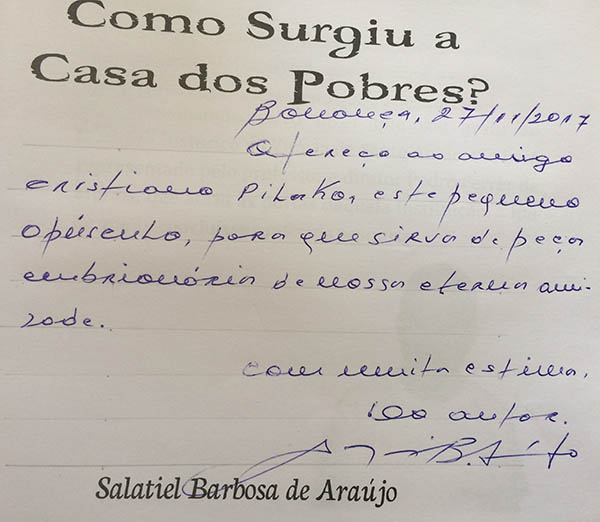 Como Surgiu a
Casa dos Pobres?
Bonança, 27/11/2017
Ofereço ao amigo
cristiano Pilako, este pequeno
opúsculo, para que sirva de peça
embrionária de nossa eterna ami-
zade.
com muita estima,
Do autor.
Salatiel Barbosa de Araújo